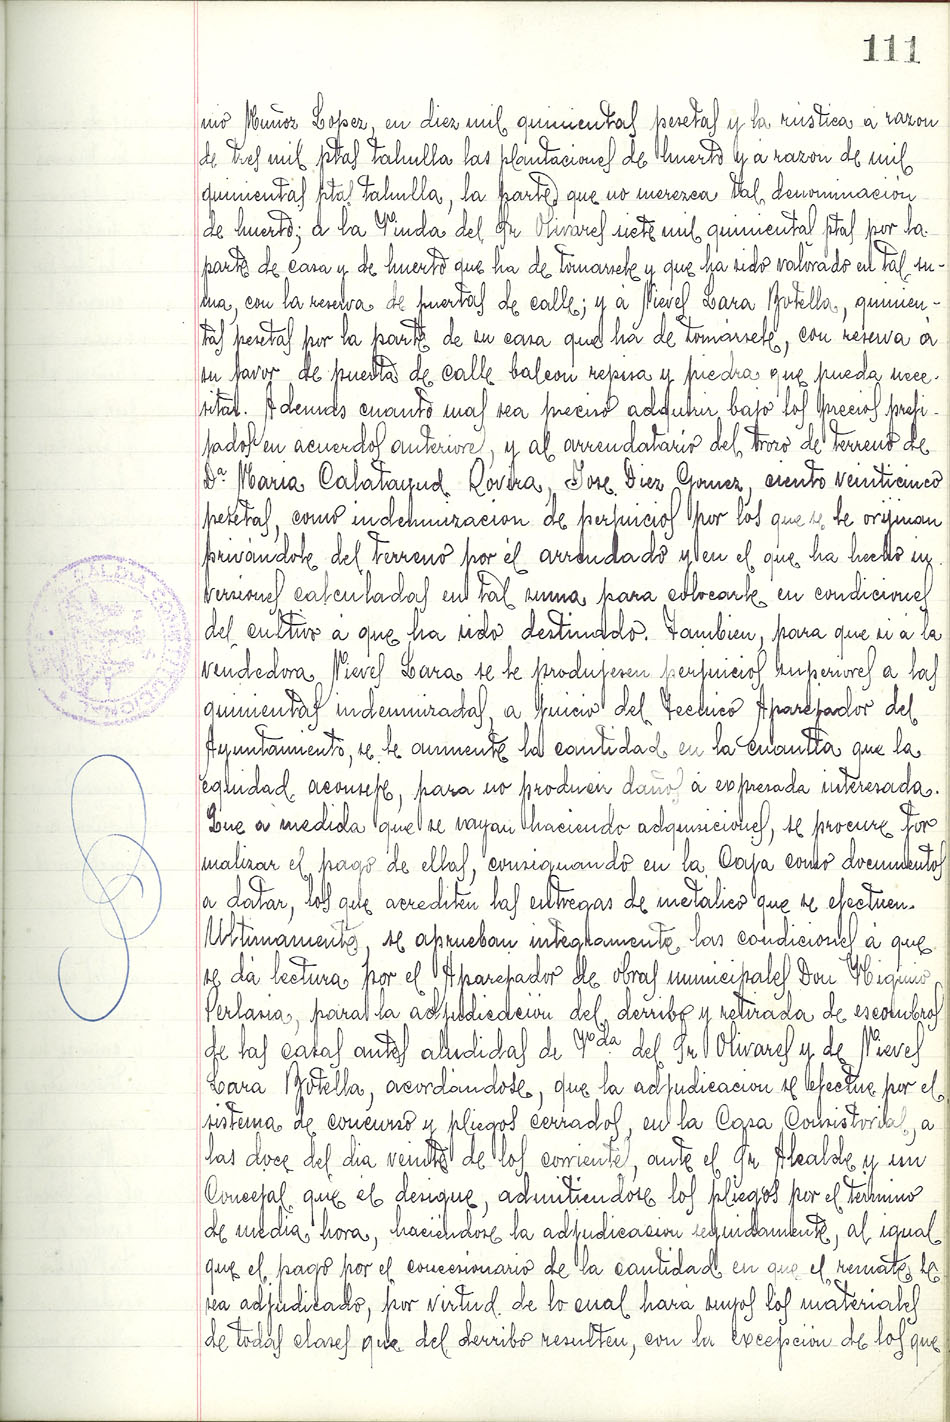 111
nio Muñoz Lopez, en diez mil quinientas pesetas y la rústica a razon
de tres mil ptas tahulla las plantaciones de huerto y a razon de mil
quinientas ptas tahulla, la parte que no merezca tal denominación
de huerto; a la Vinda del Sr Olivares siete mil quinientas ptas por la
parte de casa y de huerto que ha de tomarsele y que ha sido valorado en tal su-
ma, con la reserva de puertas de calle; y a Nieves Lara Botella, quinien-
tas pesetas por la parte de su casa que ha de tomársele, con reserva á
su favor de puerta de calle balcon repisa y piedra que pueda nece-
sitar. Ademas cuanto mas sea preciso adquirir bajo los precios prefi-
jados en acuerdos anteriores, y al arrendatario del trozo de terreno de
Dª Maria Calatayud Rovira, Jose Diez Gomez, ciento veinticinco
pesetas, como indemnizacion de perjuicios por los que se le originan
privándole del terreno por él arrendado y en el que ha hecho in-
versiones calculadas en tal suma para colocarle en condiciones
del cultivo á que ha sido destinado. Tambien, para que si a la
vendedora Nieves Lara se le produjesen perjuicios superiores a las
quinientas indemnizadas, a juicio del Tecnico Aparejador del
Ayuntamiento, se le aumente la cantidad en la cuantia que la
equidad aconseje, para no producir daños á expresada interesada.
Que a medida que se vayan haciendo adquisiciones, se procure for
malizar el pago de ellas, consignando en la Caja como documentos
a datar, los que acrediten las entregas de metalico que se efectuen.
Ultimamente, se aprueban integramente las condiciones á que
se dá lectura por el Aparejador de obras municipales Don Higinio
Perlasia, para la adjudicación del derribo y retirada de escombros
de las casas antes aludidas de Vda del Sr Olivares y de Nieves
Lara Botella, acordándose, que la adjudicacion se efectue por el
sistema de concurso y pliegos cerrados, en la Casa Consistorial, a
las doce del dia veinte de los corrientes, ante el Sr Alcalde y un
Concejal que él designe, admitiendose los pliegos por el término
de media hora, haciendose la adjudicacion seguidamente, al igual
que el pago por el concesionario de la cantidad en que el remate le
sea adjudicado, por virtud de lo cual hará suyos los materiales
de todas clases que del derribo resulten, con la excepción de los que